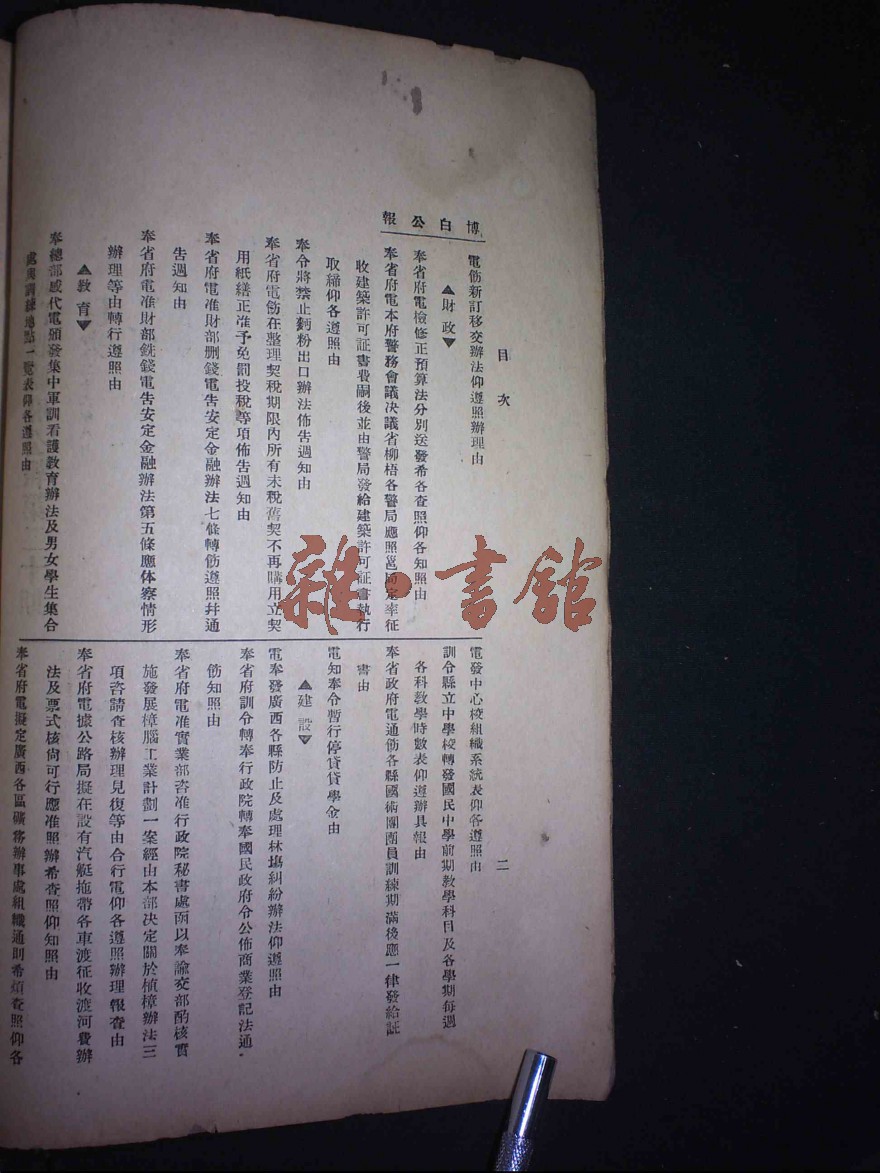 博白公報
目次
二
電飭新訂移交辦法仰遵照辦理由
▲財政▼
奉省府電檢修正預算法分別送發希各查照仰各知照由
奉省府電本府警務會議决議省柳梧各警局應照邕局定率征
收建築許可証書費嗣後並由警局發給建築許可証書執行
取締仰各遵照由
奉令將禁止麪粉出口辦法佈告週知由
奉省府電飭在整理契稅期限內所有未稅舊契不再購用立契
用紙繕正准予免罰投稅等項佈告週知由
奉省府電准財部删錢電告安定金融辦法七條轉飭遵照幷通
告週知由
奉省府電准財部銑錢電告安定金融辦法第五條應体察情形
辦理等由轉行遵照由
▲教育▼
奉總部咸代電頒發集中軍訓看護教育辦法及男女學生集合
處與訓練地點一覽表仰各遵照由
電發中心校組織系統表仰各遵照由
訓令縣立中學校轉發國民中學前期教學科目及各學期每週
各科教學時數表仰遵辦具報由
奉省政府電通飭各縣國術團團員訓練期滿後應一律發給証
書由
電知奉令暫行停貸貸學金由
▲建設▼
電奉發廣西各縣防止及處理林塲糾紛辦法仰遵照由
奉省府訓令轉奉行政院轉奉國民政府令公佈商業登記法通
飭知照由
奉省府電准實業部咨准行政院秘書處函以奉諭交部酌核實
施發展樟腦工業計劃一案經由本部决定關於植樟辦法三
項咨請查核辦理見復等由合行電仰各遵照辦理報查由
奉省府電據公路局擬在設有汽艇拖帶各車渡征收渡河費辦
法及票式核尙可行應准照辦希查照仰知照由
奉省府電擬定廣西各區礦務辦事處組織通則希煩查照仰各
雜·書館